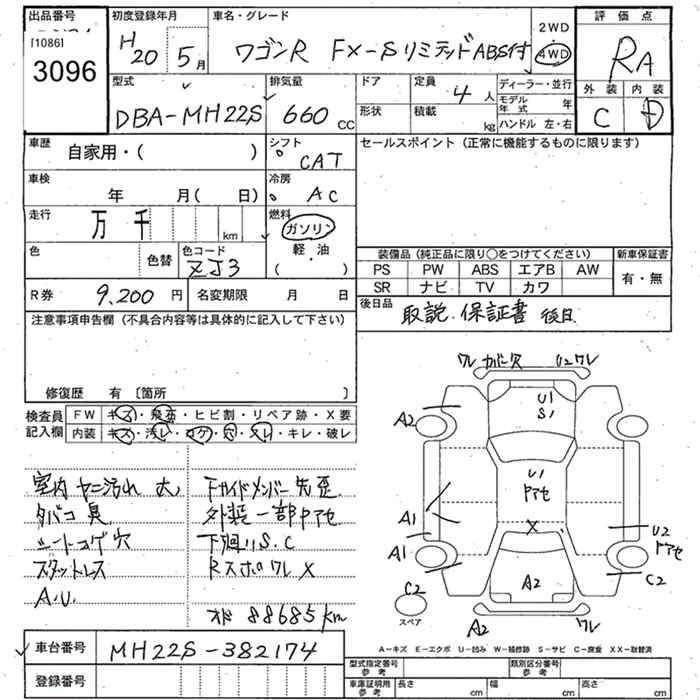 出品番号 初度登録年月 車名・グレード 2WD 評価点
[1086] H20 5月 ワゴンR FX-SリミテッドABS付 4WD RA
3096
型式 排気量 ドア 定員 4人 ディーラー・並行 外装 内装
DBA-MH22S 660cc 形状 積載 kg モデル年式 年 C D
ハンドル 左・右
車歴 シフト セールスポイント（正常に機能するものに限ります）
自家用・( ) CAT
車検 冷房
年 月( 日) AC
走行 燃料
万 千 km ガソリン
軽・油
( )
色 色替 色コード 装備品（純正品に限り○をつけてください） 新車保証書
ZJ3 PS PW ABS エアB AW 有・無
SR ナビ TV カワ
R券 9,200円 名変期限 月 日 後日品
取説 保証書 後日
注意事項申告欄（不具合内容等は具体的に記入して下さい）
修復歴 有 〔箇所 〕
検査員 FW キズ・飛石・ヒビ割・リペア跡・X要
記入欄 内装 キズ・汚レ・コゲ・穴・スレ・キレ・破レ
室内ヤニ汚れ 大 下カイドメンバー先歪
タバコ臭 外装一部ドアセ
シートコゲ穴 下廻りS.C
スタットレス Rスポワレ X
A.U. オド 88685km
ワレ カバー欠 U2ワレ
U1
S1
A2
U1
ドアセ
A1
X
A1 U2
ドアセ
C2 A2 C2
スペア
A2 ワレ
車台番号 MH22S-382174
A−キズ E−エクボ U−凹み W−補修跡 S−サビ C−腐食 XX−取替済
登録番号 型式指定番号 参考 類別区分番号 参考
車庫証明用 参考 長さ cm 幅 cm 高さ cm